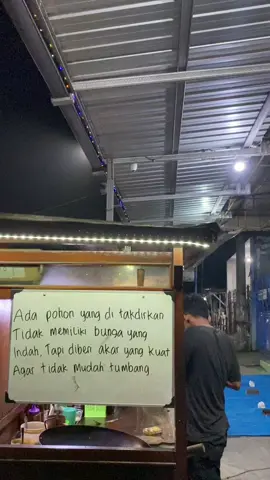 Ada pohon yang di takdirkan
Tidak memiliki bunga yang
Indah, Tapi diberi akar yang kuat
Agar tidak Mudah tumbang